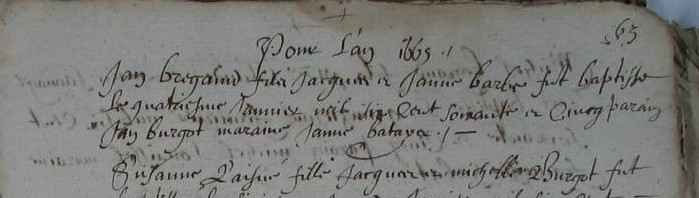 63
Pour L'an 1665 ./
Jan bregand fils Jacques et Janne barbe fut baptisse
Le quatriesme Janvier mil six Cent soixante et Cincq parain
Jan burgot maraine Janne batayer ./
Susanne fille Jacques et michelle Burgot fut